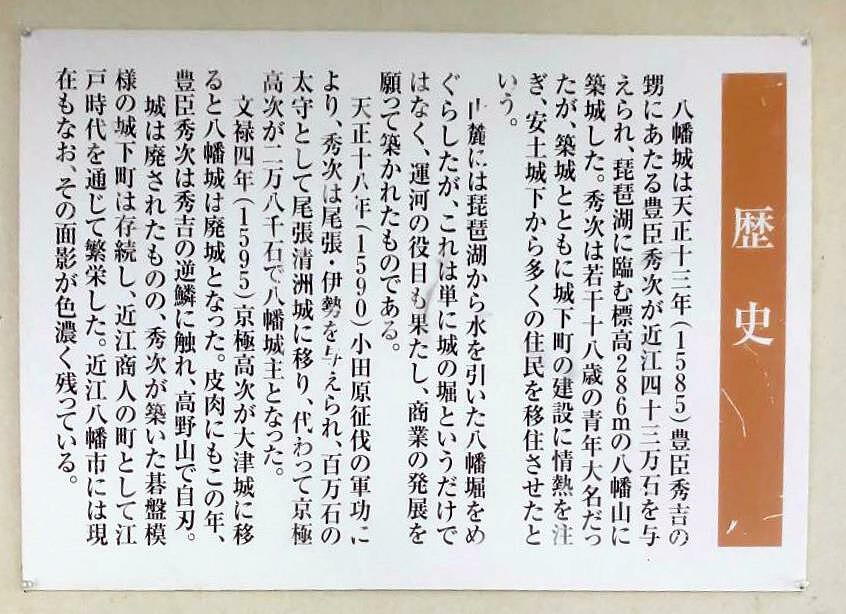 歴史
八幡城は天正十三年(1585)豊臣秀吉の
甥にあたる豊臣秀次が近江四十三万石を与
えられ、琵琶湖に臨む標高286mの八幡山に
築城した。秀次は若干十八歳の青年大名だっ
たが、築城とともに城下町の建設に情熱を注
ぎ、安土城下から多くの住民を移住させたと
いう。
山麓には琵琶湖から水を引いた八幡堀をめ
ぐらしたが、これは単に城の堀というだけで
はなく、運河の役目も果たし、商業の発展を
願って築かれたものである。
天正十八年(1590)小田原征伐の軍功に
より、秀次は尾張・伊勢を与えられ、百万石の
太守として尾張清洲城に移り、代わって京極
高次が二万八千石で八幡城主となった。
文禄四年(1595)京極高次が大津城に移
ると八幡城は廃城となった。皮肉にもこの年、
豊臣秀次は秀吉の逆鱗に触れ、高野山で自刃。
城は廃されたものの、秀次が築いた碁盤模
様の城下町は存続し、近江商人の町として江
戸時代を通じて繁栄した。近江八幡市には現
在もなお、その面影が色濃く残っている。